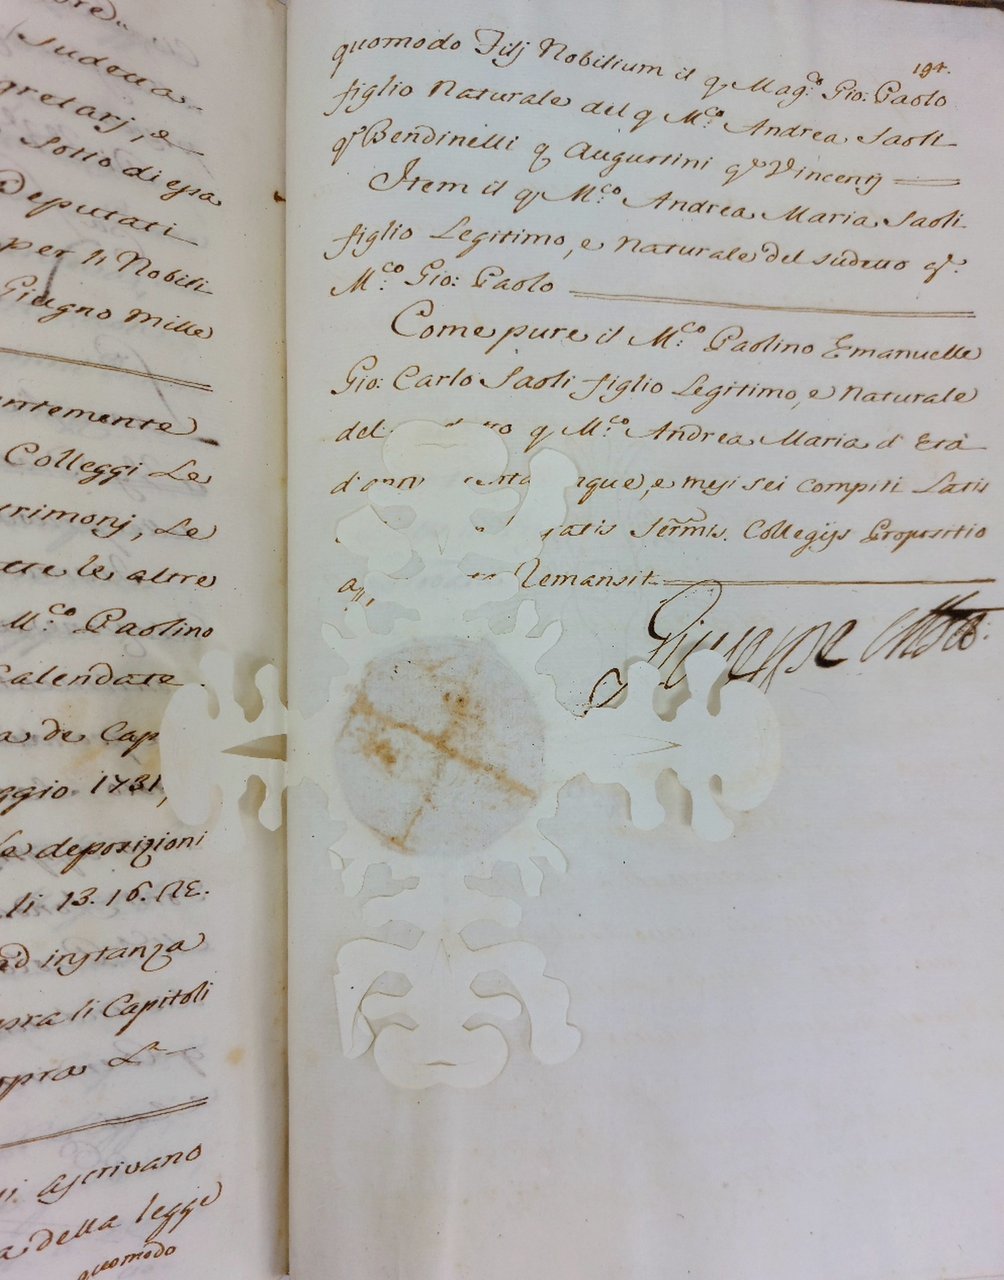 sudetta
gretarj, e
sotto di essa
Deputati
per li Nobili
Giugno mille
ntemente
Colleggi Le
trimonj, Le
tte le altre
M.co Paolino
Calendate
a de Cap
ggio 1731,
la deposizioni
li 13. 16.
ad instanza
pra li Capitoli
opra L
ascrivano
a della legge
quomodo
194.
quomodo Filj Nobilium il q Mag.co Gio: Paolo
figlio Naturale del q M.co Andrea Saoli
q Bendinelli q Augustini q Vincentij
Item il q M.co Andrea Maria Saoli
figlio Legitimo, e Naturale del sudetto q.
M.co Gio: Paolo
Come pure il M.co Paolino Emanuelle
Gio: Carlo Saoli figlio Legitimo, e Naturale
del q M.co Andrea Maria d'Età
d'anni nque, e mesi sei compiti Latis
atis Ser.mis Collegijs Propositio
Remansit
Giuseppe